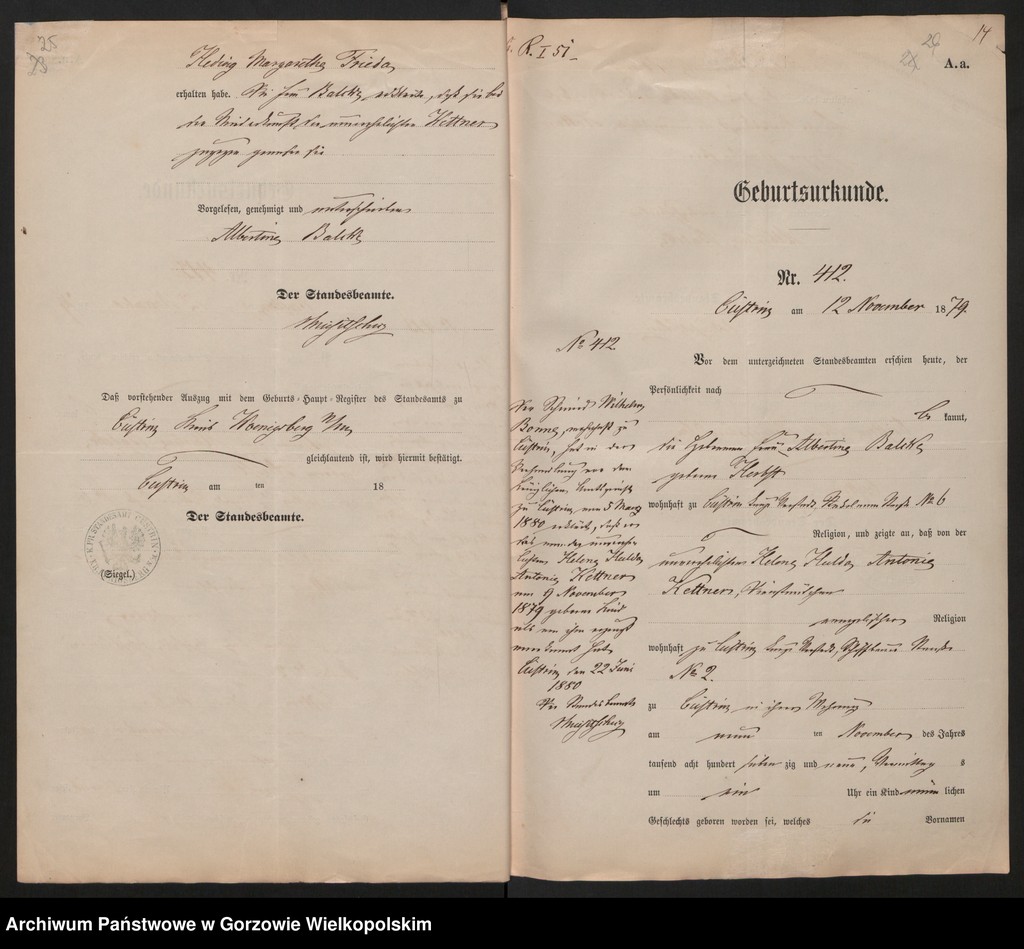 25
23
Hedwig Margarethe Frieda
erhalten habe. Die Frau Balcke erklärte, daß sie bei
der Niederkunft der unverehelichten Kettner
zugegen gewesen sei
Vorgelesen, genehmigt und unterschrieben
Albertine Balcke
Der Standesbeamte.
Daß vorstehender Auszug mit dem Geburts-Haupt-Register des Standesamts zu
Cüstrin Kreis Koenigsberg N/M
gleichlautend ist, wird hiermit bestätigt.
Cüstrin am ten 18
Der Standesbeamte.
(Siegel.)
R. I 51
14
A. a.
Geburtsurkunde.
Nr. 412.
Cüstrin am 12 November 1879.
Vor dem unterzeichneten Standesbeamten erschien heute, der
Persönlichkeit nach
bekannt,
die Hebamme Frau Albertine Balcke
geborne Herbst
wohnhaft zu Cüstrin kurze Vorstadt, No 6
Religion, und zeigte an, daß von der
unverehelichten Helene Hulda Antonie
Kettner, Dienstmädchen
evangelischer Religion
wohnhaft zu Cüstrin kurze Vorstadt, Straße
No 2.
zu Cüstrin in ihrer Wohnung
am neun ten November des Jahres
tausend acht hundert siebenzig und neun, Vormittags
um ein Uhr ein Kind männlichen
Geschlechts geboren worden sei, welches die Vornamen
No 412.
Der Schmied Wilhelm
Bonne, wohnhaft zu
Cüstrin, hat in der
Verhandlung vor dem
Königlichen Amtsgericht
zu Cüstrin vom 5 März
1880 erklärt, daß er
das von der unverehe-
lichten Helene Hulda
Antonie Kettner
am 9 November
1879 geborne Kind
als von ihm erzeugt
anerkannt habe
Cüstrin den 22 Juni
1880
Der Standesbeamte
Archiwum Państwowe w Gorzowie Wielkopolskim